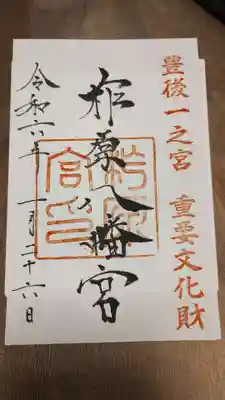 豊後一之宮 重要文化財
柞原八幡宮
令和六年 一月二十六日